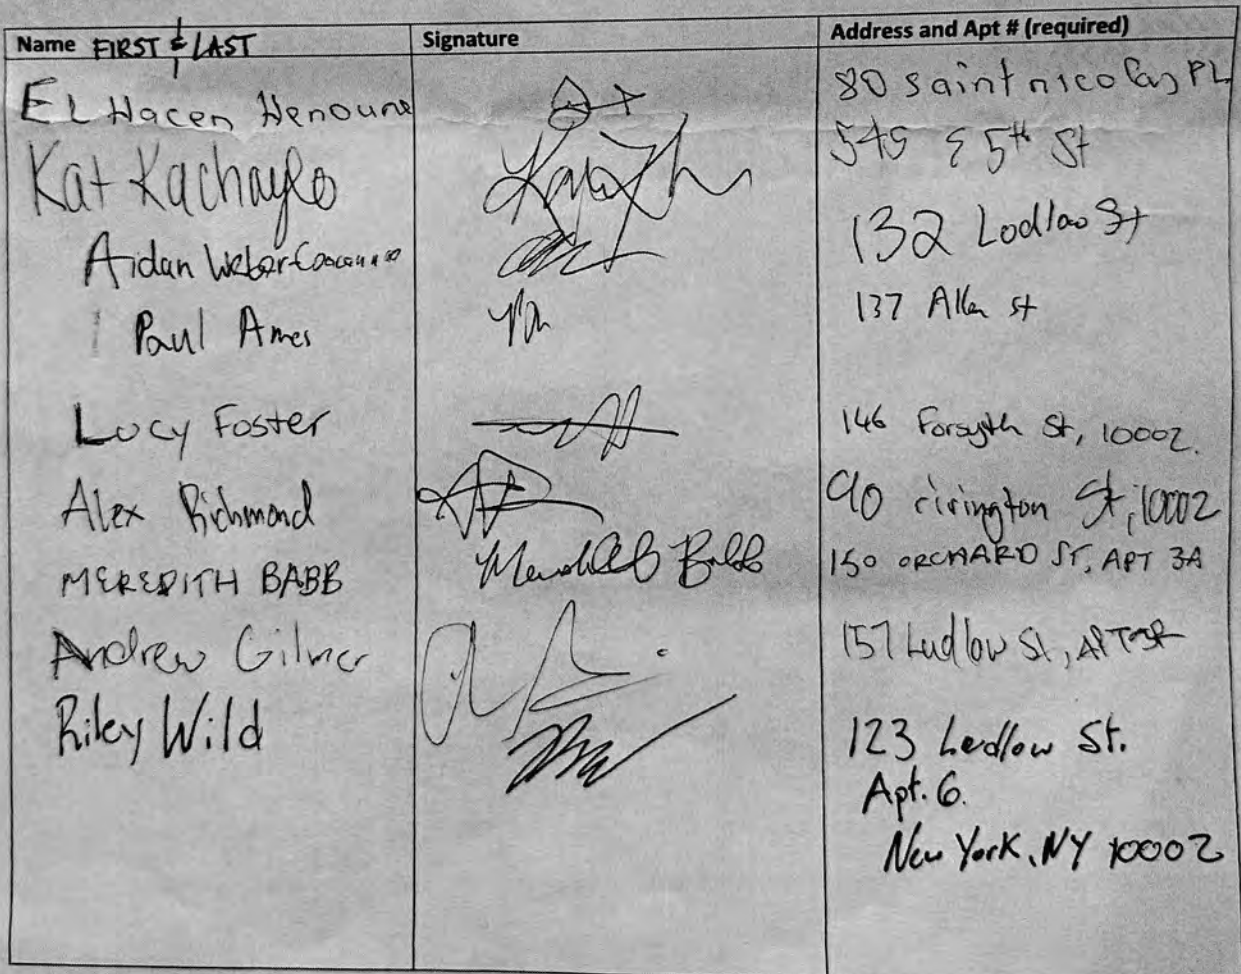 Name FIRST & LAST Signature Address and Apt # (required)
EL Hacen Henoune 80 saint nicolas PL
Kat Kachaylo 545 E 5th St
Aidan Weber 132 Lodlow St
Paul Ames 137 Allen st
Lucy Foster 146 Forsyth St, 10002.
Alex Richmond 90 rivington St, 10002
MEREDITH BABB Meredith Babb 150 ORCHARD ST, APT 3A
Andrew Gilmer 157 Ludlow St, APT
Riley Wild 123 Ludlow St.
Apt. 6.
New York, NY 10002